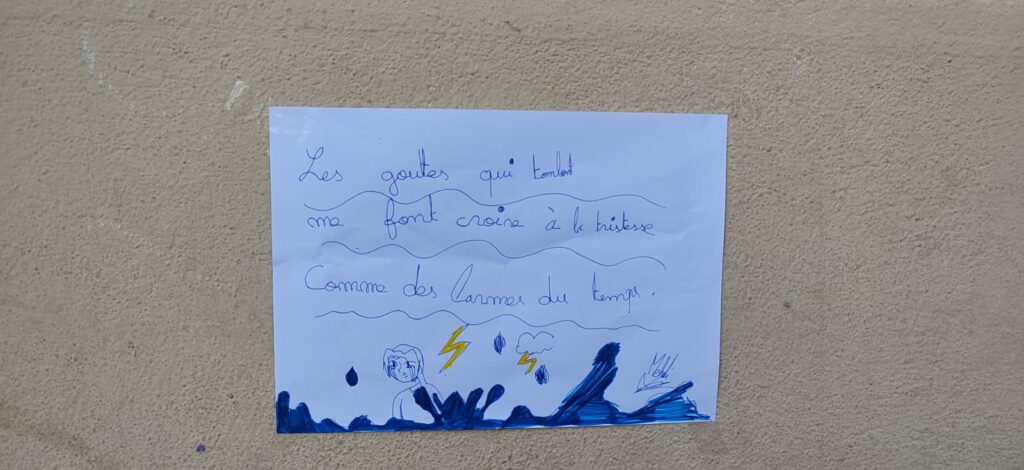 Les gouttes qui tombent
me font croire à la tristesse
Comme des larmes du temps.